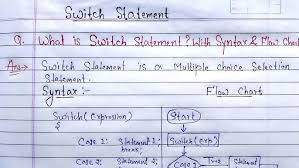 Switch Statement
Q. What is Switch Statement? With Syntax & Flow Chart
Ans→ Switch Statement is a Multiple choice Selection
Statement.
Syntax :- Flow Chart
Switch(expression) Start
{ Switch(exp)
Case 1: Statement 1
break;
Case 2: Statement
Case 1 Statement
True